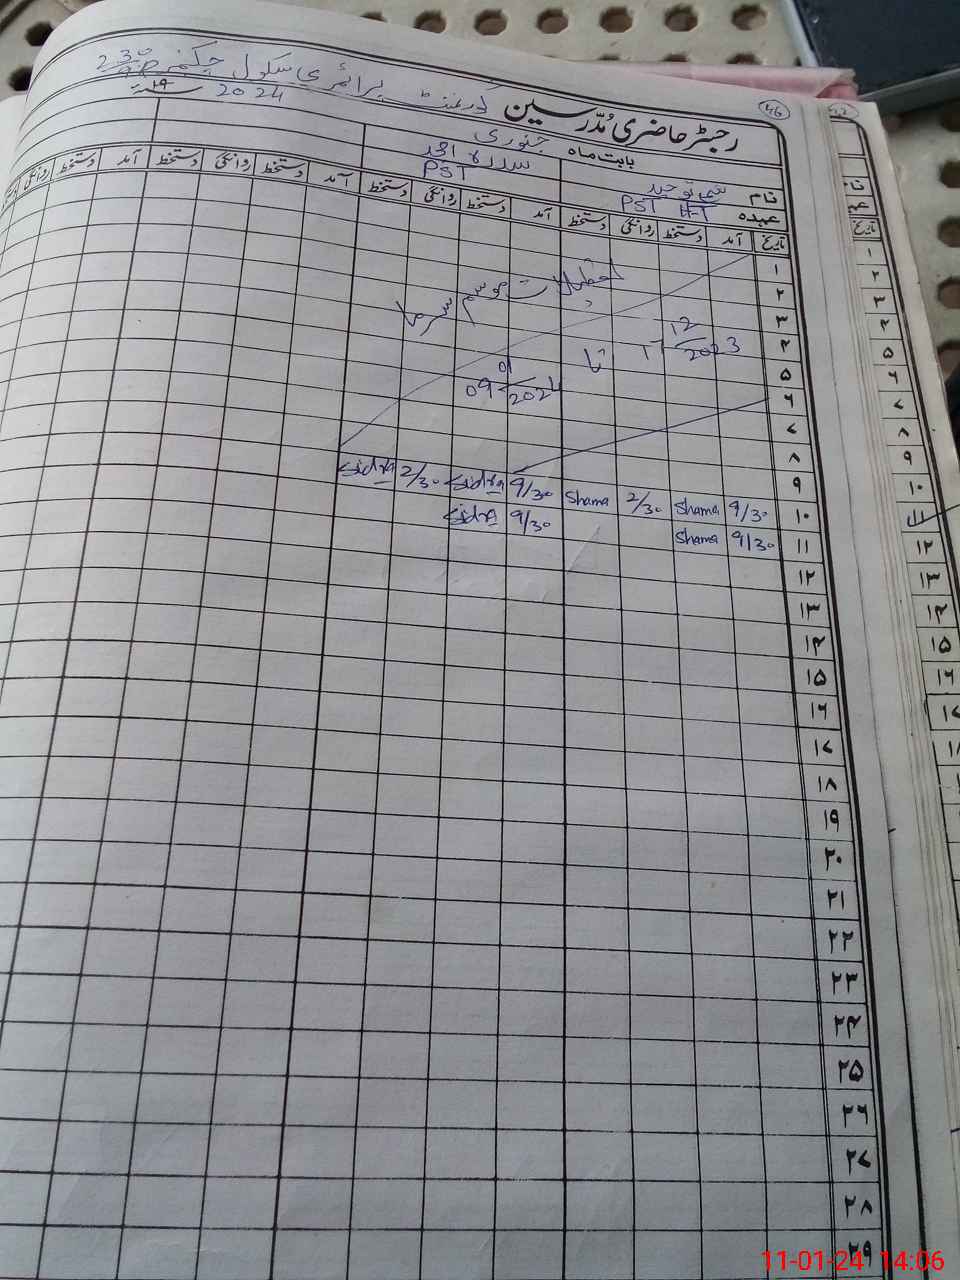 رجسٹر حاضری مُدّرسین گورنمنٹ پرائمری سکول چکنمبر 230
46
بابت ماہ جنوری 2024 ۱۹
نام شمع توحید سدرہ احمد
عہدہ PST H-T PST
تاریخ آمد دستخط روانگی دستخط آمد دستخط روانگی دستخط آمد دستخط روانگی دستخط آمد دستخط روانگی
۱
۲ تعطیلات موسم سرما
۳ 12
۴ 17 2023 تا 01
۵ 09 2024
۶
۷
۸
۹
۱۰ 9/30 Shama 2/30 Shama 9/30 Sidra 2/30 Sidra
۱۱ 9/30 Shama 9/30 Sidra
۱۲
۱۳
۱۴
۱۵
۱۶
۱۷
۱۸
۱۹
۲۰
۲۱
۲۲
۲۳
۲۴
۲۵
۲۶
۲۷
۲۸
۲۹
تاریخ
۱
۲
۳
۴
۵
۶
۷
۸
۹
۱۰
۱۱
۱۲
۱۳
۱۴
۱۵
۱۶
۱۷
۱۸
11-01-24 14:06